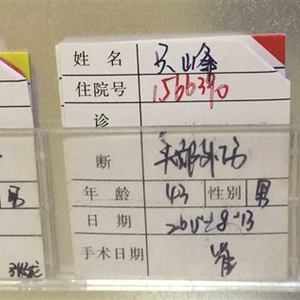 姓 名 吴峰
住院号 1566390
诊
断 头部外伤
年 龄 43 性别 男
日 期 2015.8.13
手术日期
男